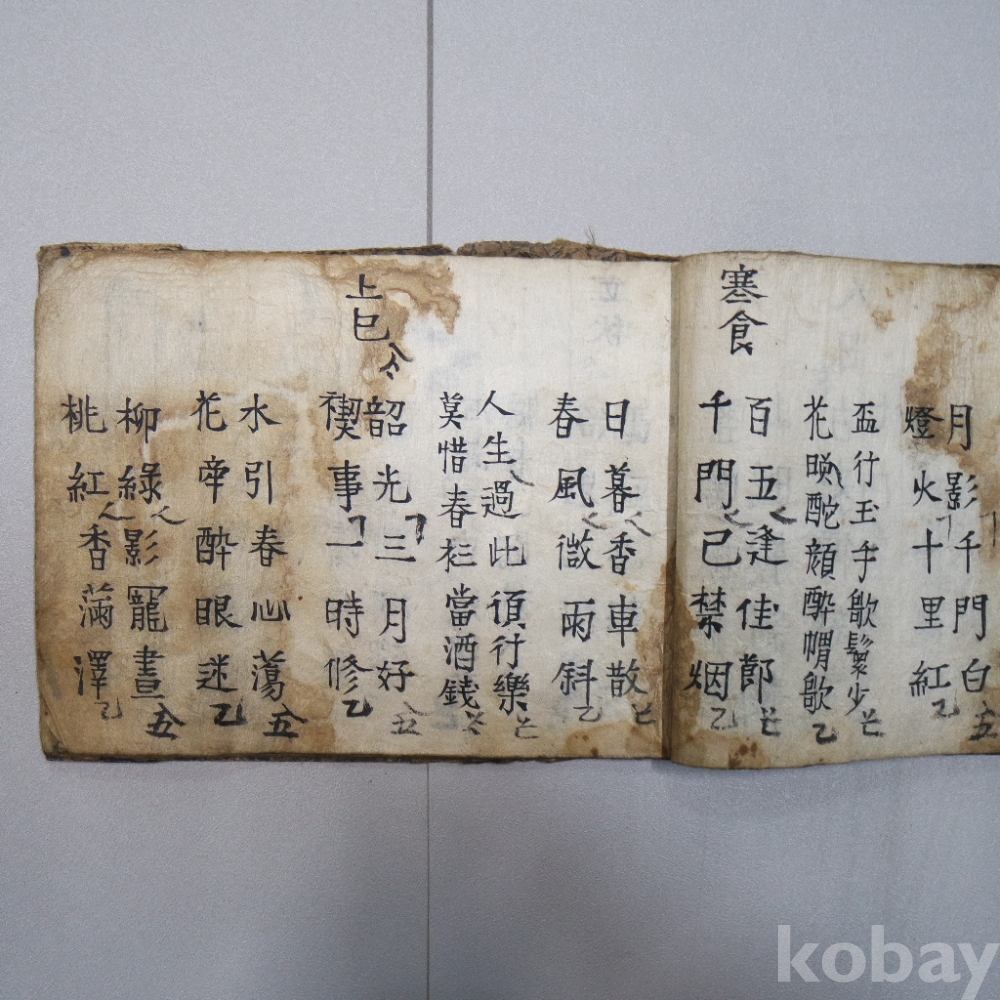 月影千門白 五
燈火十里紅 乙
盃行玉手歌鬟少
花暎酡顔醉帽欹 乙
寒食
百五逢佳節
千門己禁烟 乙
日暮香車散
春風微雨斜 乙
人生過此須行樂
莫惜春衫當酒錢
上巳
韶光三月好 五
禊事一時修 乙
水引春心蕩 五
花牽醉眼迷 乙
柳綠影寵晝 五
桃紅香滿澤 乙
kobay